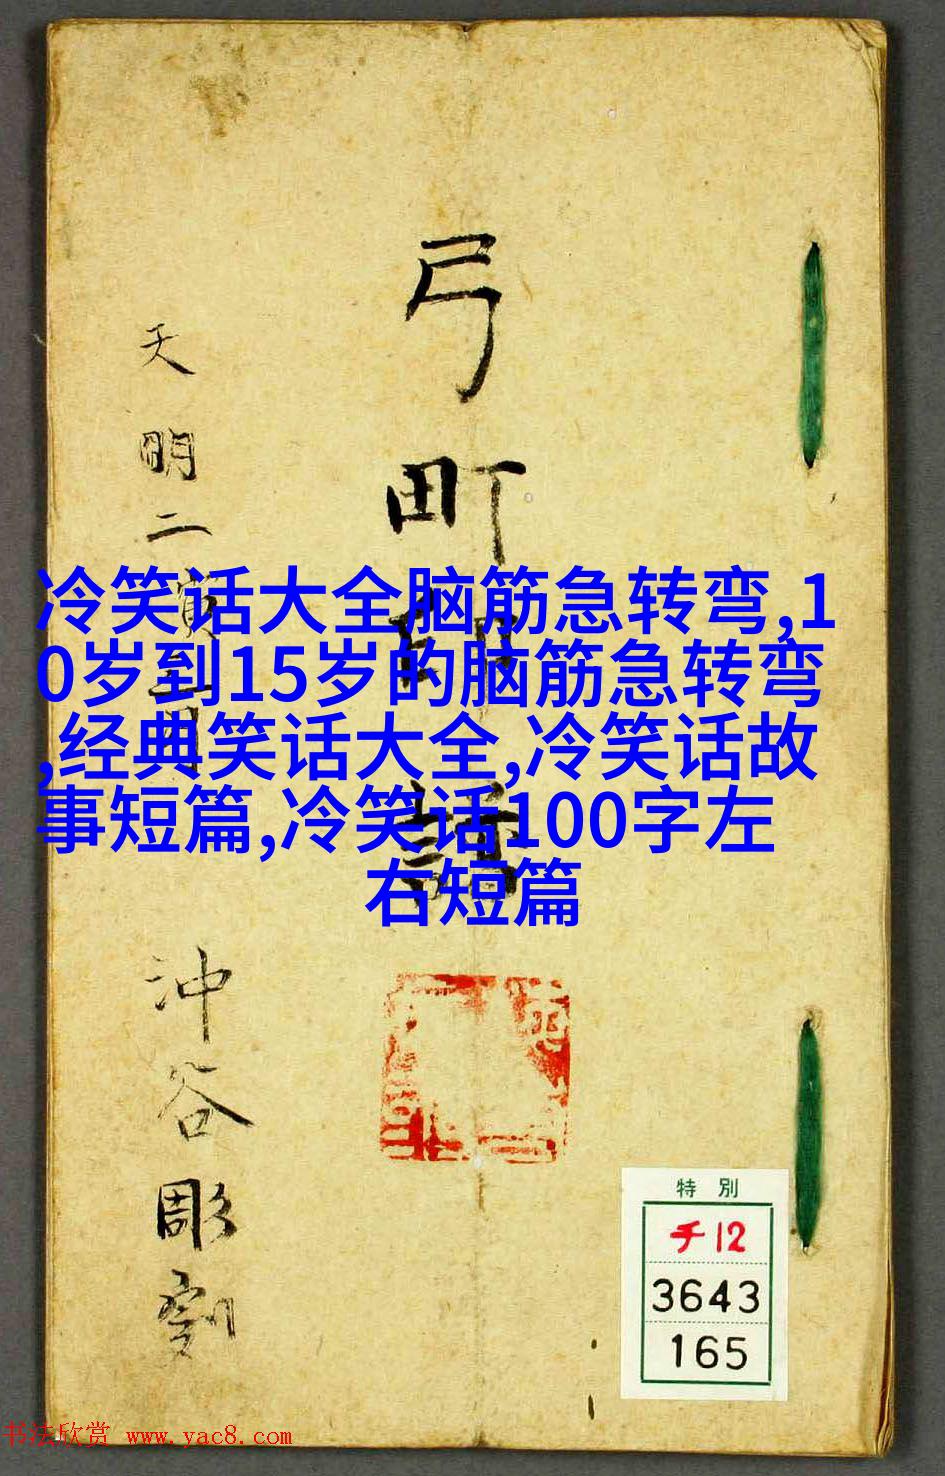 弓町
天明二寅
冷笑话大全脑筋急转弯,1
0岁到15岁的脑筋急转弯
,经典笑话大全,冷笑话故
事短篇,冷笑话100字左
右短篇
沖谷彫刻
特別
チ12
3643
165
书法欣赏 www.yac8.com